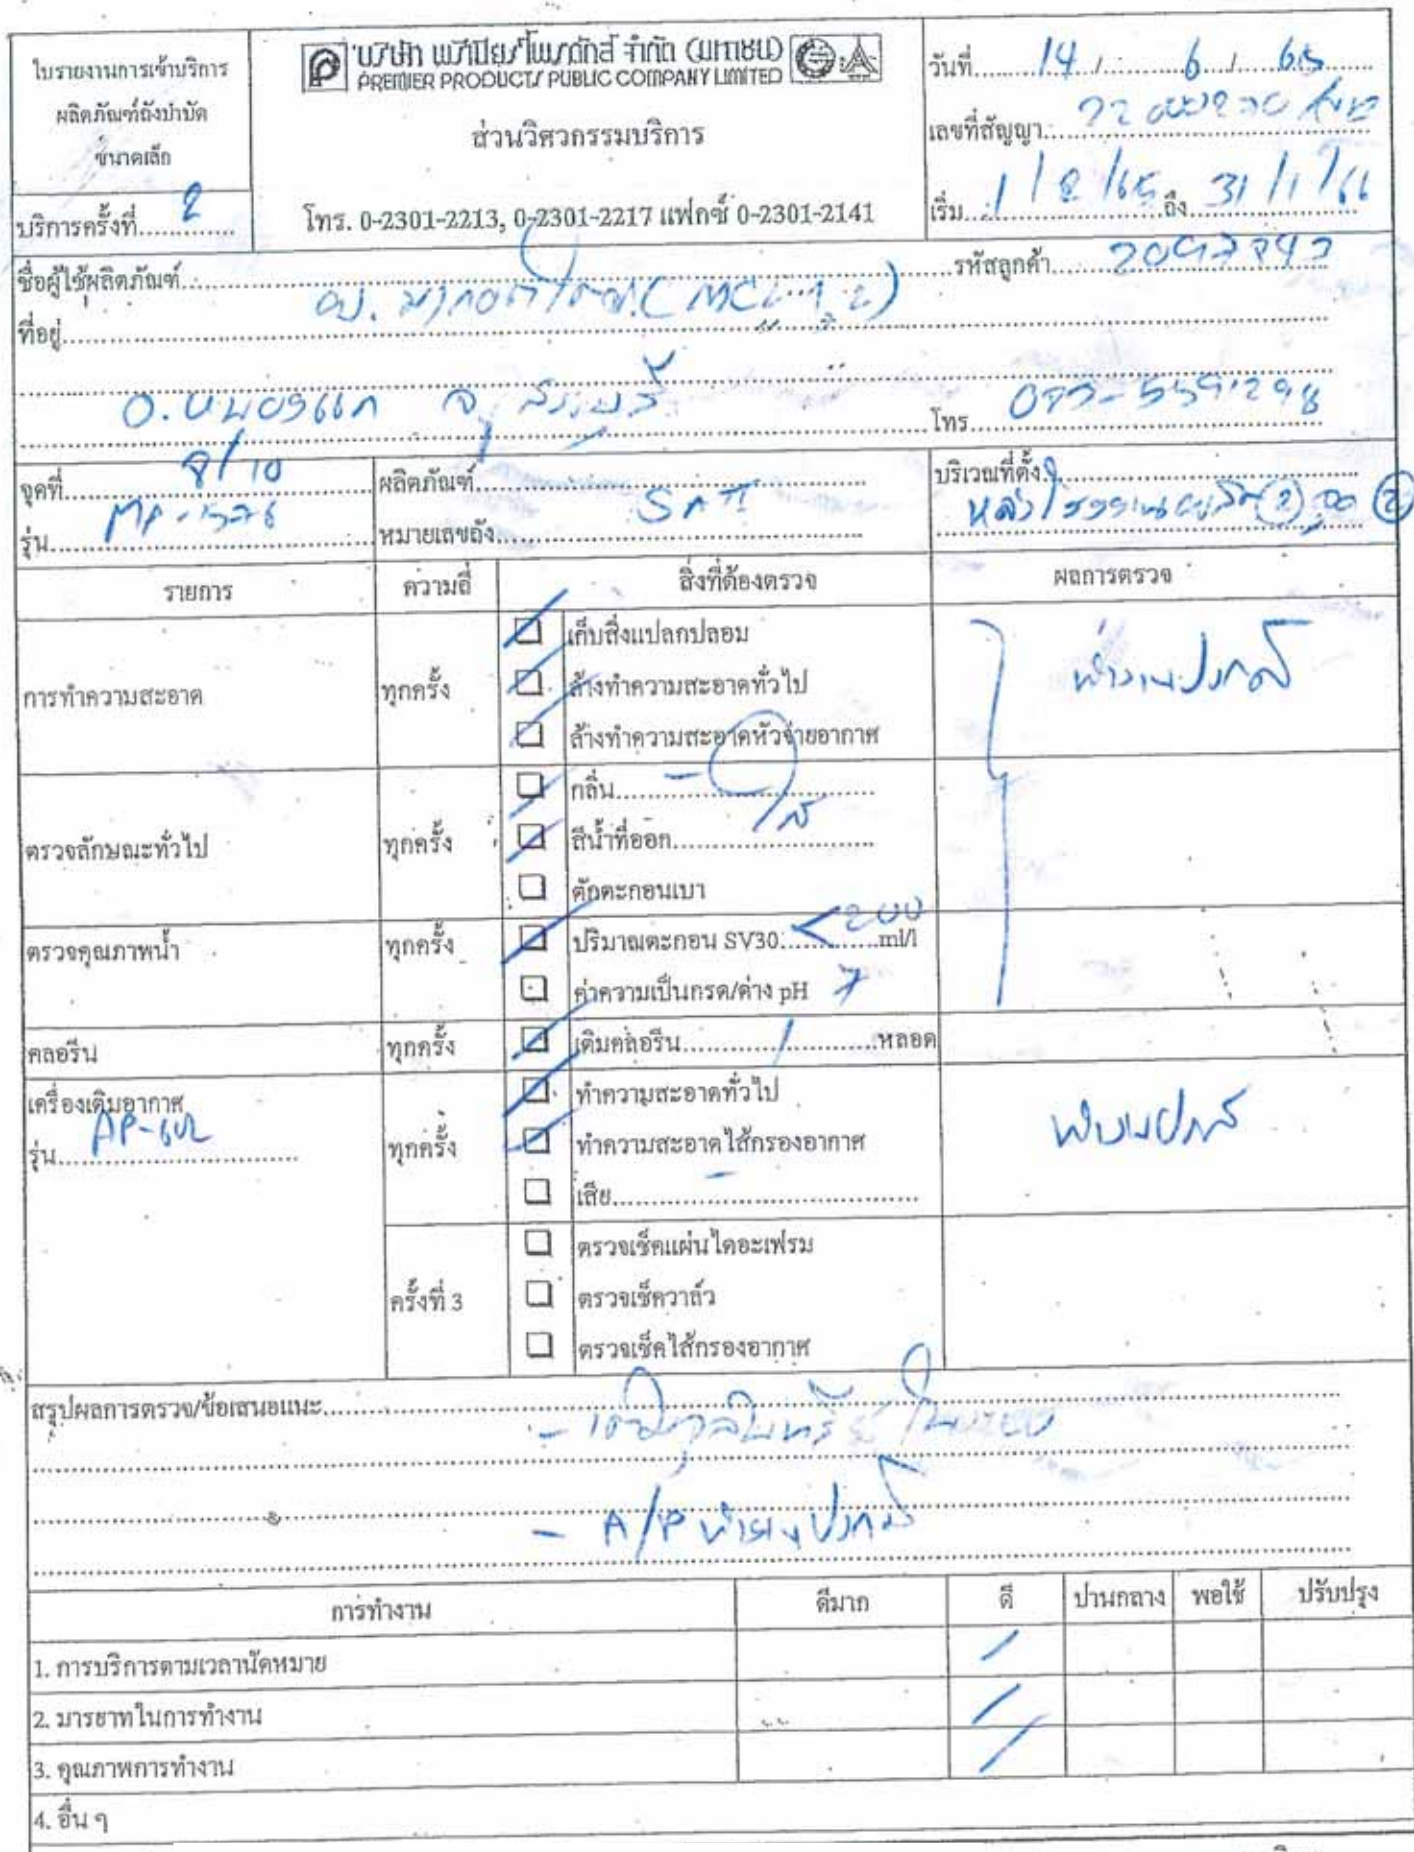 ใบรายงานการเข้าบริการ
ผลิตภัณฑ์ถังบำบัด
ขนาดเล็ก
บริการครั้งที่.............. 2
บริษัท พรีเมียร์ โพรดักส์ จำกัด (มหาชน)
PREMIER PRODUCTS PUBLIC COMPANY LIMITED
ส่วนวิศวกรรมบริการ
โทร. 0-2301-2213, 0-2301-2217 แฟกซ์ 0-2301-2141
วันที่ 14 / 6 / 65
เลขที่สัญญา
เริ่ม 1/2/65 ถึง 31/1/66
ชื่อผู้ใช้ผลิตภัณฑ์
รหัสลูกค้า
ที่อยู่
อ.หนองแค จ. สระบุรี
โทร
จุดที่ 9/10
รุ่น
ผลิตภัณฑ์ SATT
หมายเลขถัง
บริเวณที่ตั้ง
รายการ ความถี่ สิ่งที่ต้องตรวจ ผลการตรวจ
การทำความสะอาด ทุกครั้ง
เก็บสิ่งแปลกปลอม
ล้างทำความสะอาดทั่วไป
ล้างทำความสะอาดหัวจ่ายอากาศ
ทำงานปกติ
ตรวจลักษณะทั่วไป ทุกครั้ง
กลิ่น -
สีน้ำที่ออก ใส
ตักตะกอนเบา
ตรวจคุณภาพน้ำ ทุกครั้ง
ปริมาณตะกอน SV30 <200 ml/l
ค่าความเป็นกรด/ด่าง pH 7
คลอรีน ทุกครั้ง เติมคลอรีน / หลอด
เครื่องเติมอากาศ
รุ่น
ทุกครั้ง
ทำความสะอาดทั่วไป
ทำความสะอาดไส้กรองอากาศ
เสีย -
ทำงานปกติ
ครั้งที่ 3
ตรวจเช็คแผ่นไดอะเฟรม
ตรวจเช็ควาล์ว
ตรวจเช็คไส้กรองอากาศ
สรุปผลการตรวจ/ข้อเสนอแนะ
- เติมจุลินทรีย์ในระบบ
- A/P ทำงานปกติ
การทำงาน ดีมาก ดี ปานกลาง พอใช้ ปรับปรุง
1. การบริการตามเวลานัดหมาย /
2. มารยาทในการทำงาน /
3. คุณภาพการทำงาน /
4. อื่น ๆ